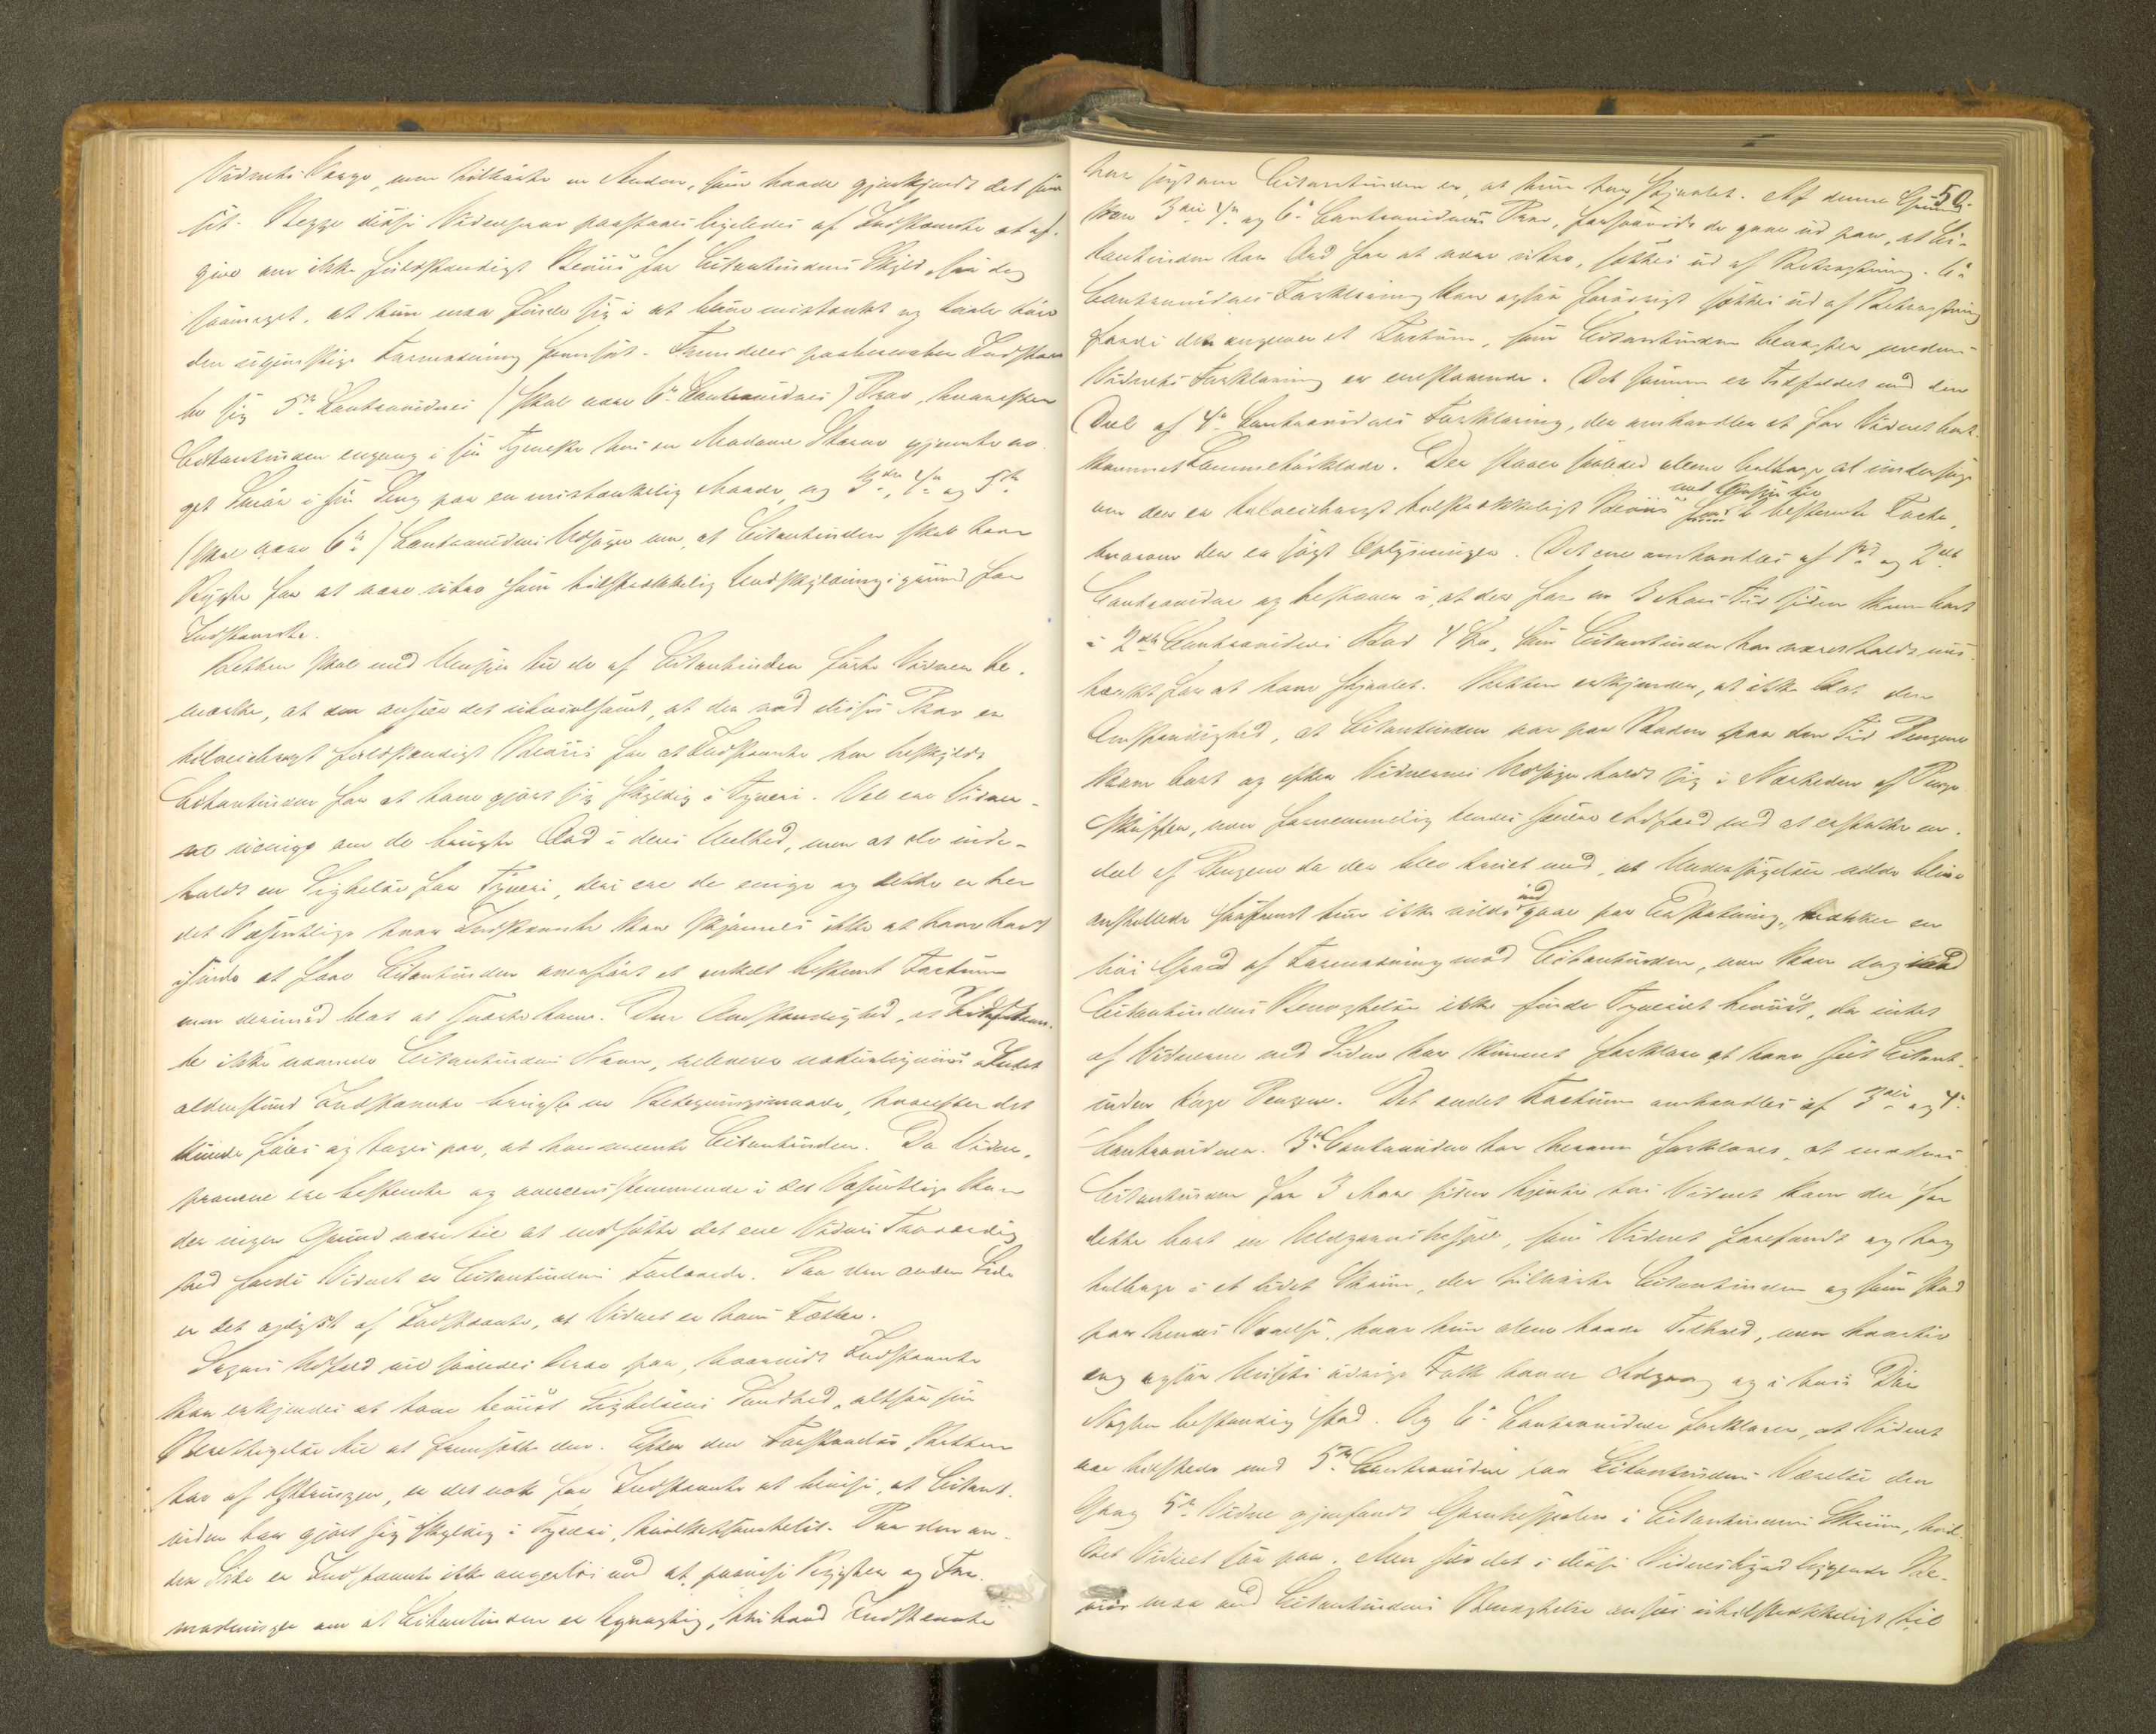 Vidnets Vaage, men tilhørte en Anden, som havde gjenkjendt det som
sit. Begge disse Vidneprov paastaaes ligeledes af Indstævnte at af-
give om ikke fuldstændigt Beviis for Citantindens Skyld, saa dog
saameget, at hun maa finde sig i at blive mistænkt og taale høre
den ugunstige Formodning fremsat. Fremdeles paaberaaber Indstævn-
te sig 5te Contravidnes (skal være 6te Contravidnes) Prov, hvorefter
Citantinden engang i sin Tjeneste hos en Madame Skaar gjemte no-
get Smør i sin Seng paa en mistænkelig Maade, og 3die, 4de og 5te
(skal være 6te) Contravidnes Udsagn om, at Citantinden skal have
Rygte for at være utro som tilstrækkelig Undskyldningsgrund for
Indstævnte.
Retten skal med Hensyn til de af Citantinden førte Vidner be-
mærke, at den anseer det utvivlsomt, at der ved disses Prov er
tilveiebragt fuldstændigt Beviis for at Indstævnte har beskyldt
Citantinden for at have gjort sig skyldig i Tyveri. Vel ere Vidner-
ne uenige om de brugte Ord i deres Heelhed, men at de inde-
holdt en Sigtelse for Tyveri, deri ere de enige og dette er her
det Væsentlige hvor Indstævnte kan skjønnes ikke at have havt
isinde at sære Citantinden anenført et enkelt bestemt Factum
men derimod blot at hvorhave. Den Omstændighed, at Indstævn-
te ikke nævnede Citantindens Navn, releverer naturligviis Intet
aldenstund Indstævnte brugte en Betegningsmaade, hvorefter det
kunde føles og tages paa, at han mente Citantinden. Da Vidne-
provene ere bestemte og overeensstemmende i det Væsentlige kan
der ingen Grund være til at underkjende det ene Vidnes Troværdig-
hed fordi Vidnet er Citantindens Forlovede. Paa den anden Side
er det oplyst af Indstævnte, at Vidnet er hans Fætter.
Sagens Udfald vil saaledes beroe paa, hvorvidt Indstævnte
kan erkjendes at have beviist Sigtelsens Sandhed, altsaa sin
Berettigelse til at fremsætte den. Efter den Forstaaelse, Retten
har af Yttringen, er det nok for Indstævnte at bevise, at Citant-
inden har gjort sig skyldig i Tyveri, hvilketsomhelst. Paa den an-
den Side er Indstævnte ikke angerløs ved at paavise Rygter og For-
modninger om at Citantinden er tyvagtig, thi hvad Indstævnte
50.
har sagt om Citantinden er, at hun har stjaalet. Af denne Grund
kan 3die 4de og 6te Contravidnes Prov, forsaavidt de gaae ud paa, at Ci-
tantinden har Ord for at være utro, sættes ud af Betragtning. 6te
Contravidnes Forklaring kan ogsaa forøvrigt sættes ud af Betragtning
fordi den angaaer et Factum, som Citantinden benægter medens
Vidnets Forklaring er enestaaende. Det samme er Tilfældet med den
Deel af 4de Contravidnes Forklaring, der omhandler et for Vidnet bort-
kommet Lommetørklæde. Der staaer saaledes alene tilbage at undersøge
om der er tilveiebragt tilstrækkeligt Beviis med Hensyn til 2 bestemte Facta,
hvorom der er søgt Oplysninger. Det ene omhandles af 1ste og 2det
Contravidne og bestaaer i, at der for en 3 Aars Tid siden kom bort
i 2det Contravidnes Baad 4 Kr., som Citantinden har været holdt mis-
tænkt for at have stjaalet. Retten erkjender, at ikke blot den
Omstændighed, at Citantinden var paa Baaden paa den Tid Pengene
kom bort og efter Vidnernes Udsagn holdt sig i Nærheden af Penge-
skuffen, men fornemmelig hendes senere Adfærd ved at erstatte en
deel af Pengene da der blev truet med, at Undersøgelse vilde blive
anstillede saafremt hun ikke vilde indgaae paa Erstatning, vækker en
høi Grad af Formodning mod Citantinden, men kan dog mod
Citantindens Benægtelse ikke finde Tyveriet beviist, da intet
af Vidnerne ved Siden har kunnet forklare at have seet Citant-
inden tage Pengene. Det andet Factum omhandles af 3die og 4de
Contravidner. 3die Contravidne har herom forklaret, at medens
Citantinden for 3 Aar siden tjente hos Vidnet kom der for
dette bort en Uldgarnshespel, som Vidnet forefandt og tog
tilbage i et lidet Skriin, der tilhørte Citantinden og som stod
paa hendes Værelse, hvor hun alene havde Tilhold, men hvortil
dog ogsaa Husets øvrige Folk havde Adgang og i hvis Dør
Nøglen bestandig stod. Og 6te Contravidne forklarer, at Vidnet
var tilstede med 5te Contravidne paa Citantindens Værelse den
Gang 5te Vidne gjenfandt Garnhespelen i Citantindens Skriin, hvil-
ket Vidnet saa paa. Men selv det i disse Vidnesbyrd liggende Be-
viis maa mod Citantindens Benægtelse ansees utilstrækkeligt til